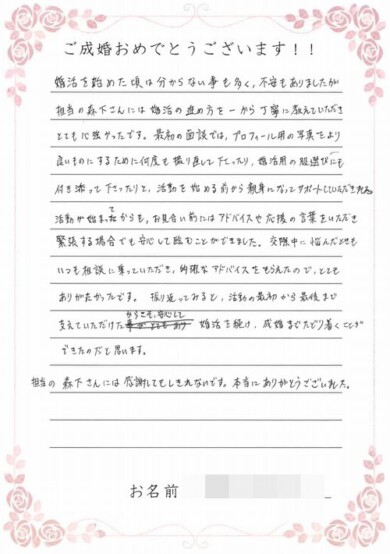 ご成婚おめでとうございます！！
婚活を始めた頃は分からない事も多く、不安もありましたが
担当の森下さんには婚活の進め方を一から丁寧に教えていただき
とても心強かったです。最初の面談では、プロフィール用の写真をより
良いものにするために何度も撮り直して下さったり、婚活用の服選びにも
付き添って下さったりと、活動を始める前から親身になってサポートしていただきました。
活動が始まってからも、お見合い前にはアドバイスや応援の言葉をいただき
緊張する場合でも安心して臨むことができました。交際中に悩んだときも
いつも相談に乗っていただき、的確なアドバイスをもらえたので、とても
ありがたかったです。振り返ってみると、活動の最初から最後まで
支えていただけたからこそ、安心して婚活を続け、成婚までたどり着くことが
できたのだと思います。
担当の森下さんには感謝してもしきれないです。本当にありがとうございました。
お名前